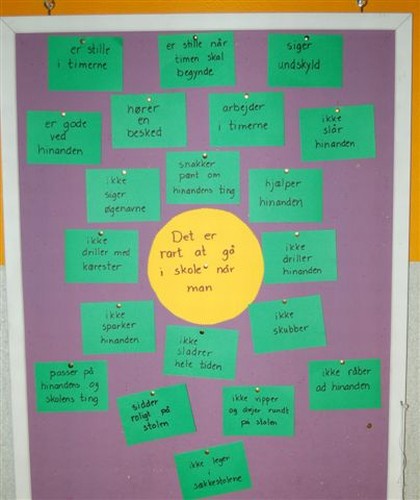 er stille
i timerne
er stille når
timen skal
begynde
siger
undskyld
er gode
ved
hinanden
hører
en
besked
arbejder
i timerne
ikke
slår
hinanden
ikke
siger
øgenavne
snakker
pænt om
hinandens ting
hjælper
hinanden
ikke
driller med
kærester
Det er
rart at gå
i skole når
man
ikke
driller
hinanden
ikke
sparker
hinanden
ikke
sladrer
hele tiden
ikke
skubber
passer på
hinandens og
skolens ting
sidder
roligt på
stolen
ikke vipper
og drejer rundt
på stolen
ikke råber
ad hinanden
ikke leger
i
sækkestolene